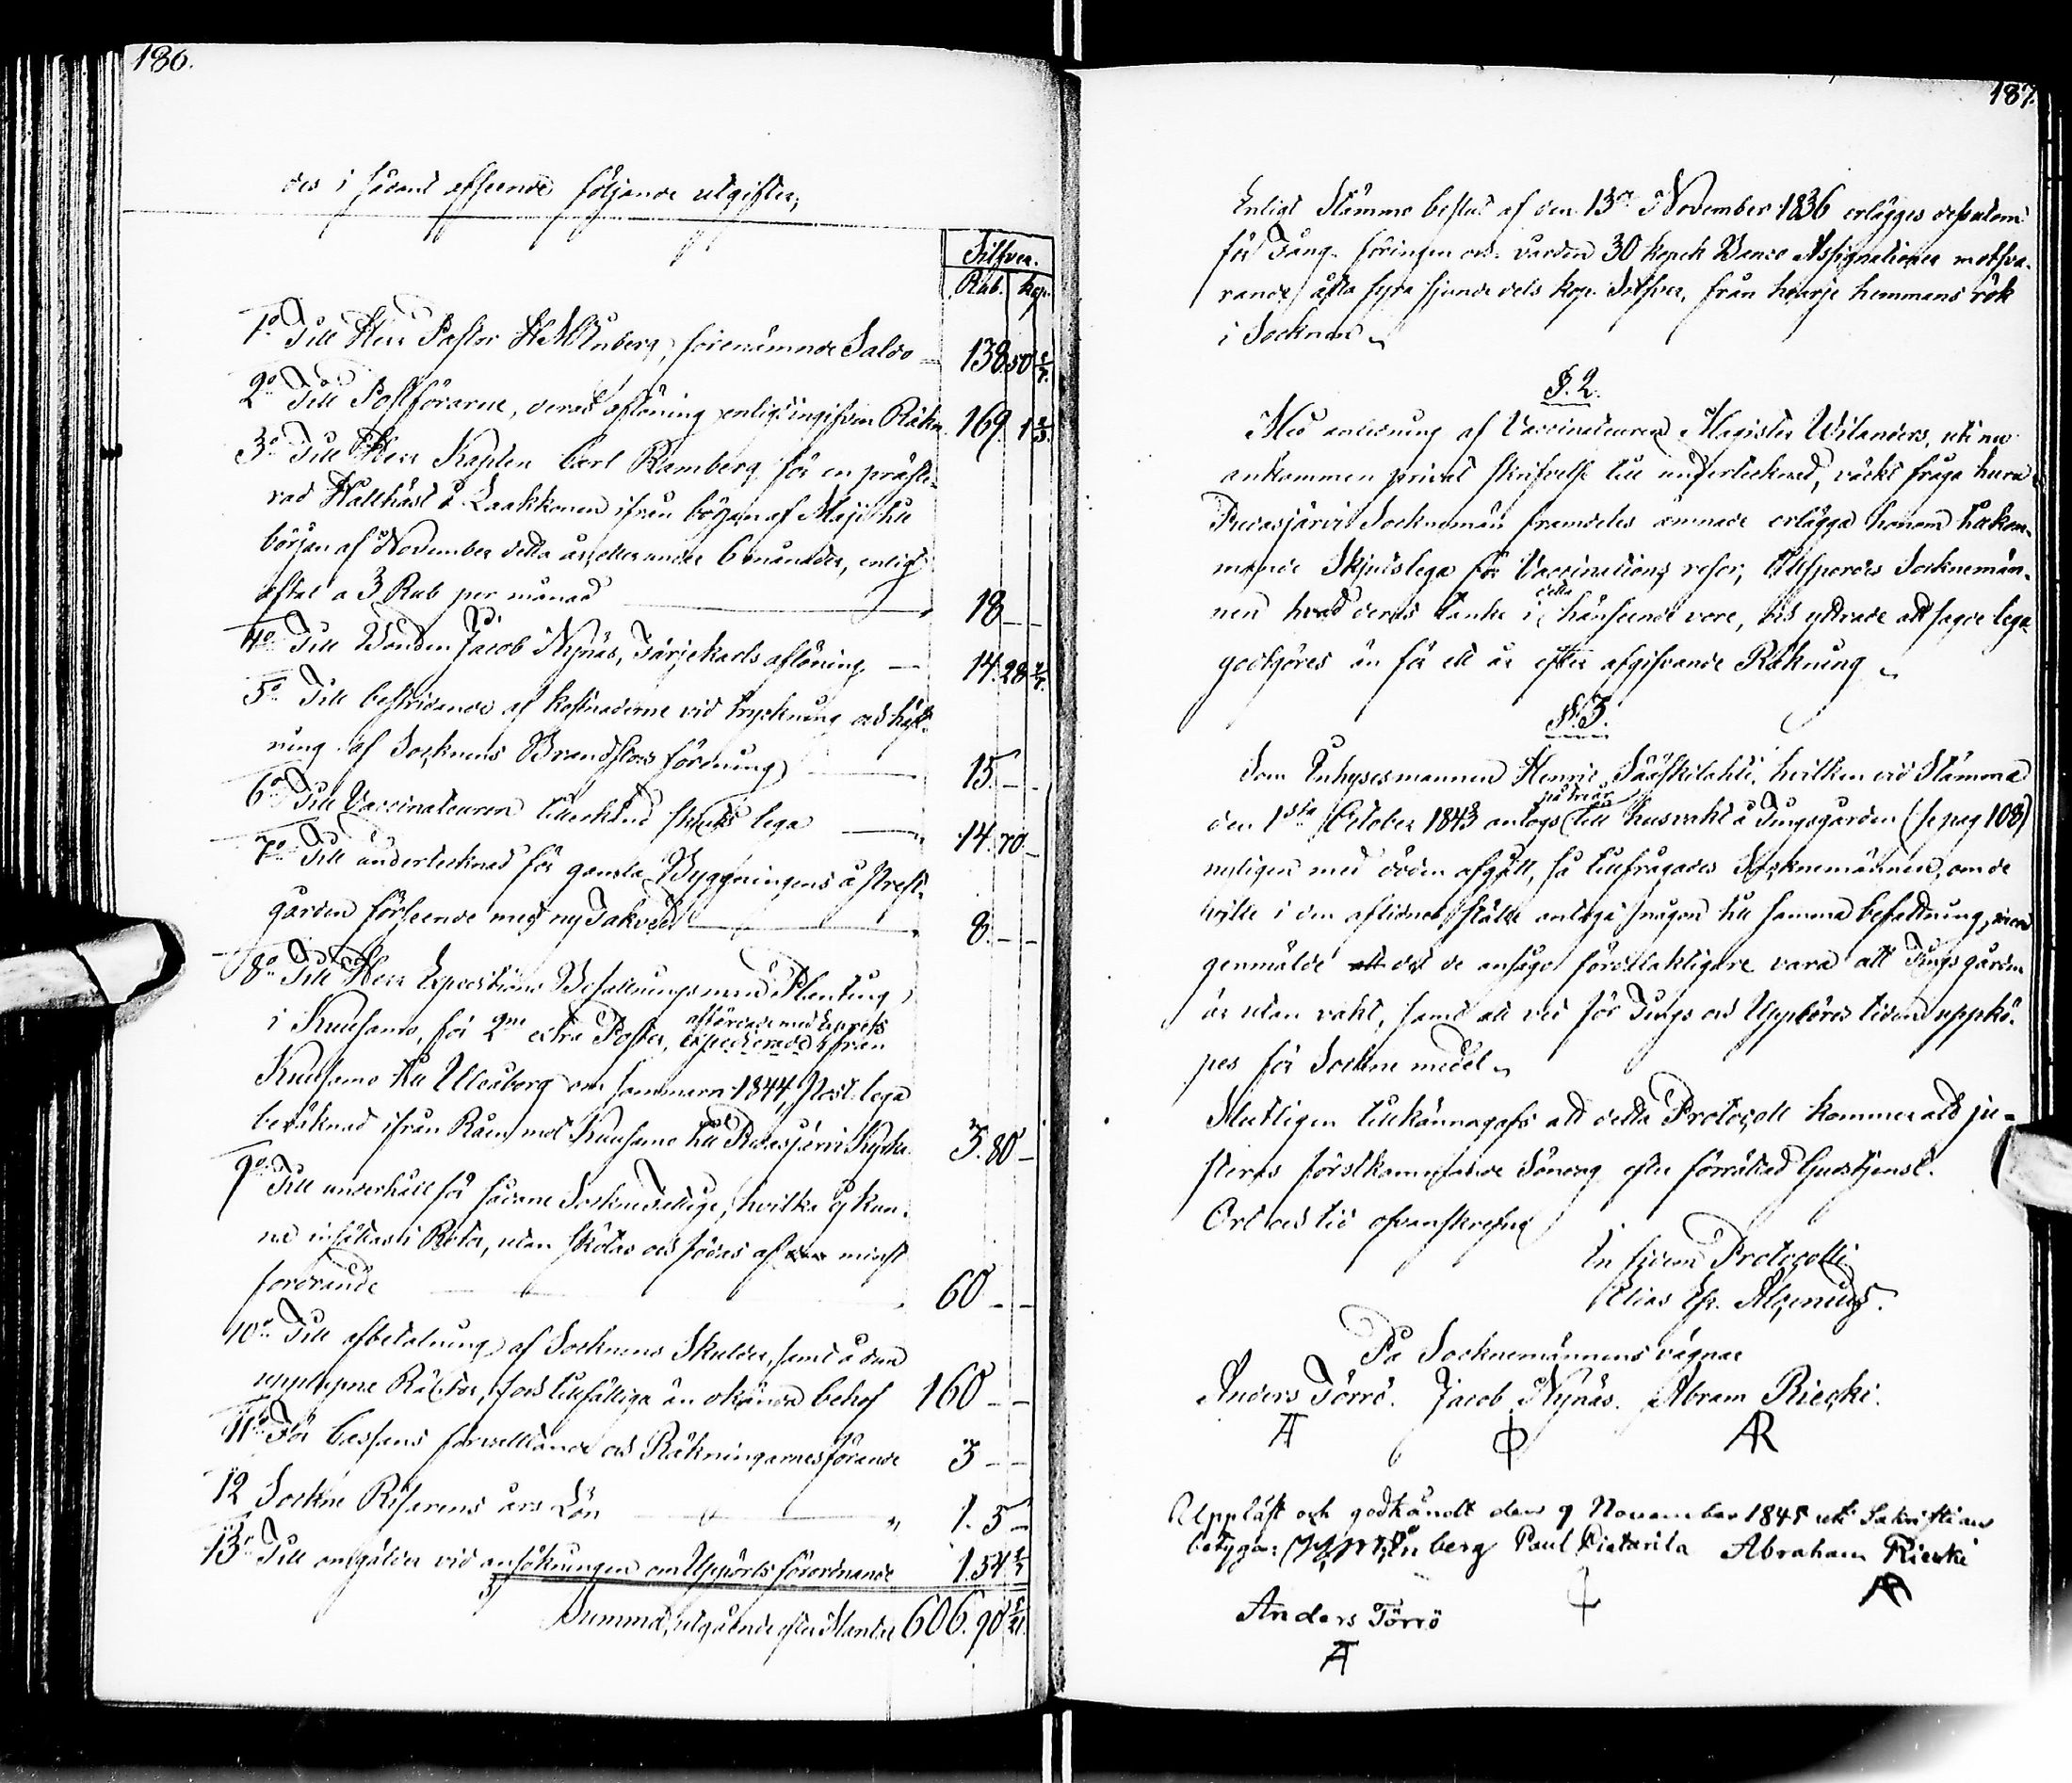 186.
des i sådant afseende följande utgifter,
Silfver.
Rub. kop.
1o Till Herr Pastor Enberg, förenämnde Saldo — 138. 50 5/7.
2o Till Postförarne, deras aflöning enligt ingifven Räkn. 169 1 2/3.
3o Till Herr Kaplan Carl Ramberg för en præste-
rad Hållhäst å Laakkonen ifrån början af Maji till
början af November detta år, eller under 6 månader, enligt
aftal a 3 Rub per månad 18 — —
4o Till Bonden Jacob Nynäs, Färjekarls aflöning — 14. 28 4/7.
5o Till bestridande af kostnaderne vid tryckning och häft-
ning af Socknens Brandstods förening 15. — —
6o Till Vaccinateuren tillerkänd skjuts lega — 14. 70 —
7o Till undertecknad för gamla Byggningens å Prest-
gården förseende med ny Takved 8. — —
8o Till Herr Expeditions Befallningsman Planting
i Kuusamo, för 2ne extra Poster, afförde med Express
expedierade ifrån
Kuusamo till Uleåborg om sommarn 1844, Post lega
beräknad ifrån Råen mot Kuusamo till Pudasjärvi Kyrka 3. 80 —
9o Till underhåll för sådane Sockne fattige, hvilka ej kun-
na insättas i Rotar, utan skötas och födas af minst
fordrande 60 — —
10o Till afbetalning af Socknens Skulder, samt å dem
upplupne Räntor, och tillfälliga än okända behof 160 — —
11o För Cassans förvaltande och Räkningarnes förande 3 — —
12 Sockne Pisarens års Lön 1. 5 —
13o Till omgälder vid ansökningen om Uppbörds förordnande 1. 54 2/7
Summa, utgående efter Mantal 606. 90 5/21.
187.
Enligt Stämmo beslut af den 13de November 1836 erlägges dessutom
för Fång-föringen och vården 30 kopek Banco Assignationer motsva-
rande åtta fyra sjundedels kop. Silfver, från hvarje hemmans rök
i Socknen
§. 2.
Med anledning af Vaccinateuren Magister Wilanders, uti nu
ankommen privat skrifvelse till undertecknad, väckt fråga huru
Pudasjärvi Socknemän framdeles ämnade erlägga honom tillkom-
mande Skjutslega för Vaccinations resor, tillspordes Socknemän-
nen hvad deras tanke i detta hänseende vore, och yttrade att sagde lega
godtgöres än för ett år efter afgifvande Räkning
§. 3.
Som Inhysesmannen Henric Sääskilahti, hvilken vid Stämma
den 1sta October 1843 antogs på tre år till husvakt å Tingsgården (se pag 108)
nyligen med döden afgått, så tillfrågades Socknemännen, om de
ville i den aflidnes ställe antaga någon till samma befattning, men
genmälde att det de ansågo fördelaktigare vara att Tingsgården
är utan vakt, samt att ved för Tings och Uppbörds tiden uppkö-
pes för Sockne medel
Slutligen tillkännagafs att detta Protocoll kommer att ju-
steras förstkommande Söndag efter förrättad Gudstjenst.
Ort och tid ofvanskrefne
In fidem Protocolli
Elias Er. Alcenius.
På Socknemännens vägnar
Anders Törrö. Jacob Nynäs. Abram Riecki.
AT AR
Uppläst och godkändt den 9 November 1845 uti Sakristian
betyga: Enberg Paul Pietarila Abraham Riecki
AR
Anders Törrö
AT